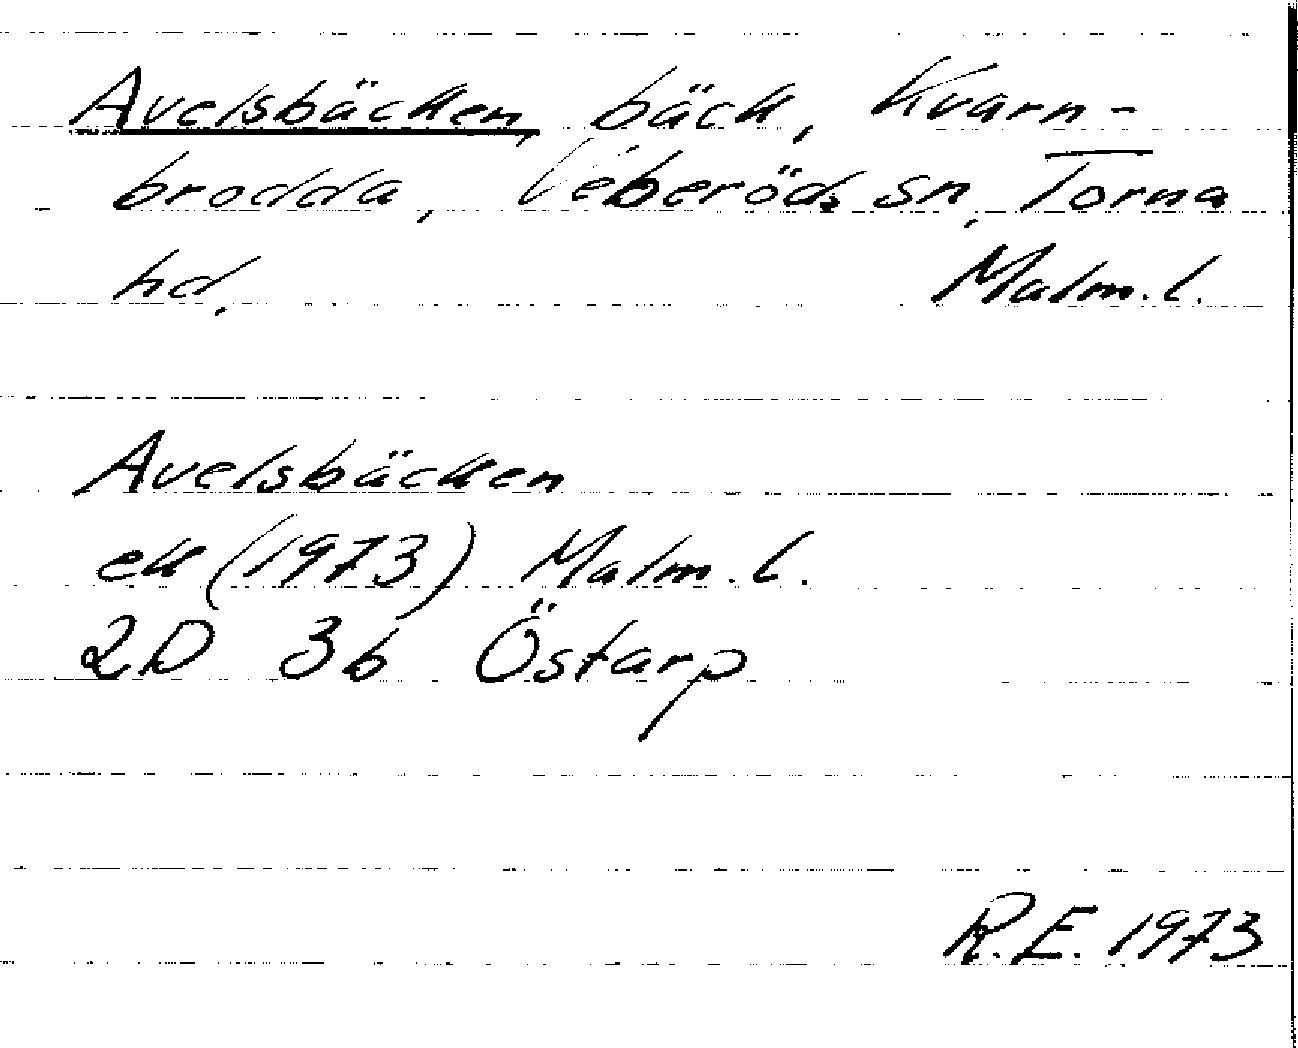 Avelsbäcken, bäck, Kvarn-
brodda, Veberöds sn, Torna
hd. Malm.l.
Avelsbäcken
ek (1973) Malm.l.
2D 3b Östarp
R.E. 1973